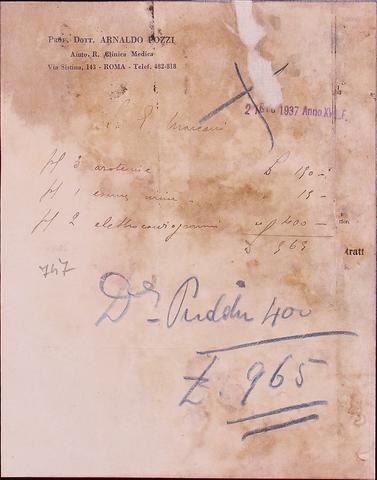 PROF. DOTT. ARNALDO POZZI
Aiuto R. Clinica Medica
Via Sistina, 143 - ROMA - Telef. 482-818
1937 Anno XV E.F.
Marconi
N 3 azotemie £ 150 -
N 1 esame urine " 15 -
N 2 elettrocardiogrammi " 400 -
965
tratt
747
Dr Puddu 400
£. 965